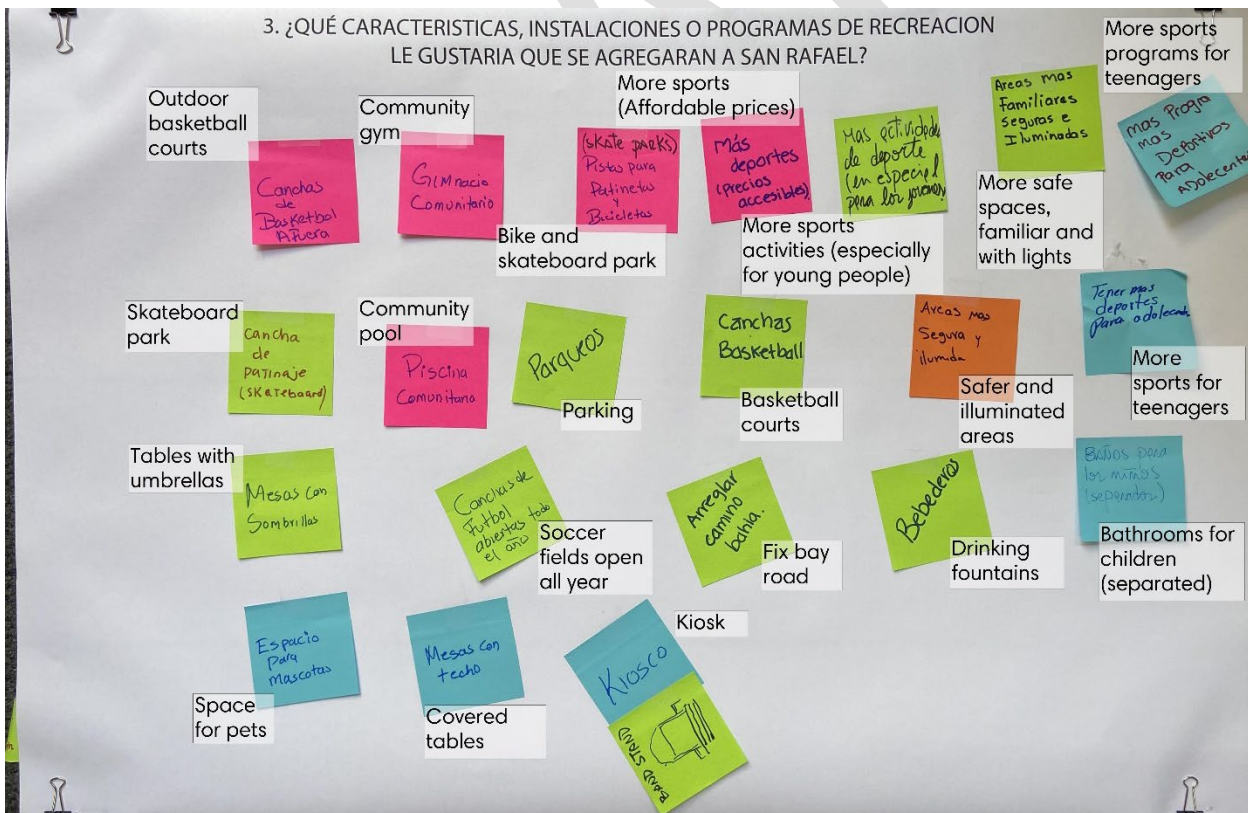 3. ¿QUÉ CARACTERISTICAS, INSTALACIONES O PROGRAMAS DE RECREACION
LE GUSTARIA QUE SE AGREGARAN A SAN RAFAEL?
Outdoor
basketball
courts
Canchas
de
Basketbol
Afuera
Community
gym
Gimnacio
Comunitario
(SKATE PARKS)
Pistas para
Patinetas
y
Bicicletas
Bike and
skateboard park
More sports
(Affordable prices)
Más
deportes
(precios
accesibles)
Mas actividades
de deporte
(en especial
para los jovenes)
More sports
activities (especially
for young people)
Areas mas
Familiares
seguras e
Iluminadas
More safe
spaces,
familiar and
with lights
More sports
programs for
teenagers
mas Progra
mas
Deportivos
Para
Adolecentes
Skateboard
park
Cancha
de
Patinaje
(skateboard)
Community
pool
Piscina
Comunitaria
Parqueos
Parking
Canchas
Basketball
Basketball
courts
Areas mas
Segura y
ilumida
Safer and
illuminated
areas
Tener mas
deportes
para adolecente
More
sports for
teenagers
Tables with
umbrellas
Mesas con
Sombrillas
Canchas de
Futbol
abiertas todo
el año
Soccer
fields open
all year
Arreglar
camino
bahia.
Fix bay
road
Bebederos
Drinking
fountains
Baños para
los niños
(separados)
Bathrooms for
children
(separated)
Espacio
para
mascotas
Space
for pets
Mesas con
techo
Covered
tables
Kiosk
Kiosco
BAND STAND